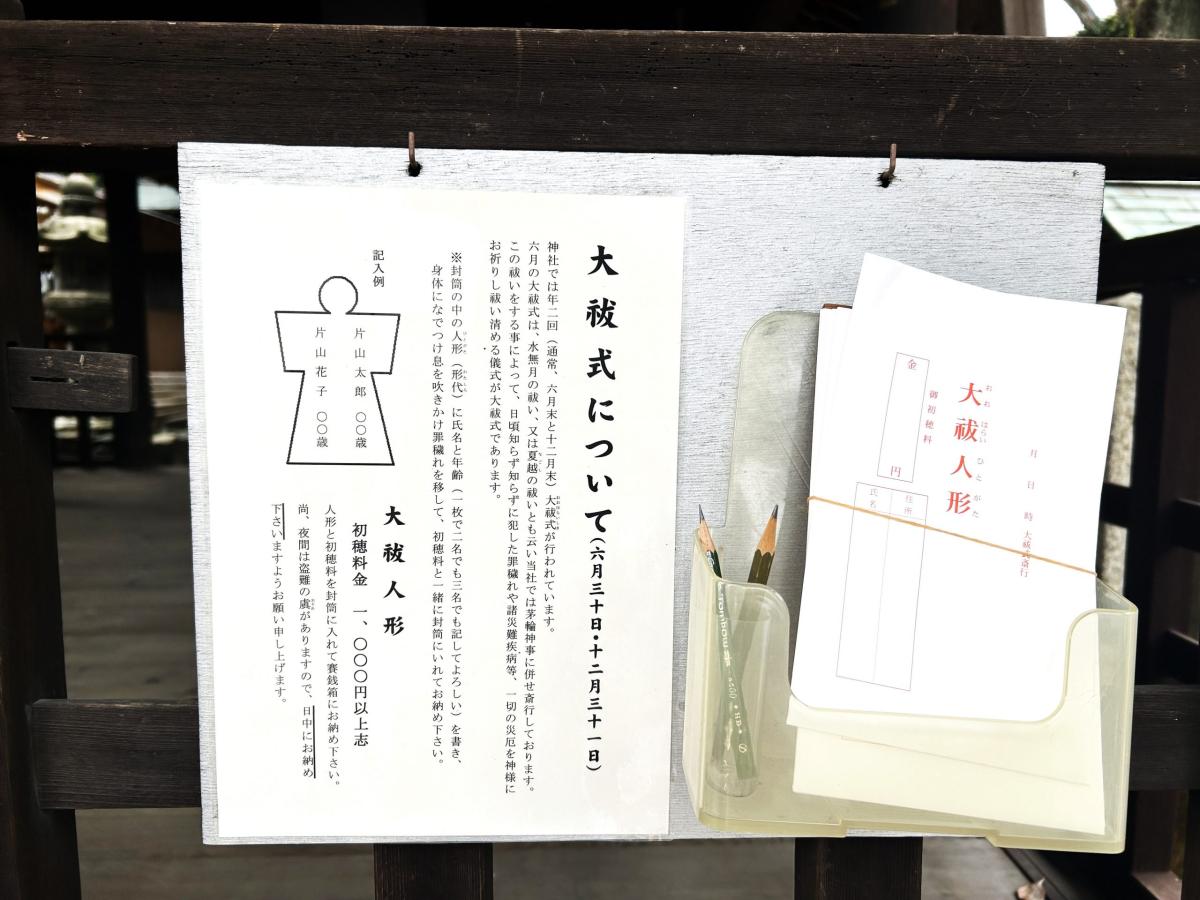 大祓式について(六月三十日・十二月三十一日)
神社では年二回(通常、六月末と十二月末)大祓式が行われています。
六月の大祓式は、水無月の祓い、又は夏越の祓いとも云い当社では茅輪神事に併せ斎行しております。
この祓いをする事によって、日頃知らず知らずに犯した罪穢れや諸災難疾病等、一切の災厄を神様に
お祈りし祓い清める儀式が大祓式であります。
※封筒の中の人形(形代)に氏名と年齢(一枚で二名でも三名でも記してよろしい)を書き、
身体になでつけ息を吹きかけ罪穢れを移して、初穂料と一緒に封筒にいれてお納め下さい。
記入例
片山太郎 〇〇歳
片山花子 〇〇歳
大祓人形
初穂料金 一、〇〇〇円以上志
人形と初穂料を封筒に入れて賽銭箱にお納め下さい。
尚、夜間は盗難の虞がありますので、日中にお納め
下さいますようお願い申し上げます。
月 日 時 大祓式斎行
大祓人形
おおはらいひとがた
御初穂料
金 円
住所
氏名